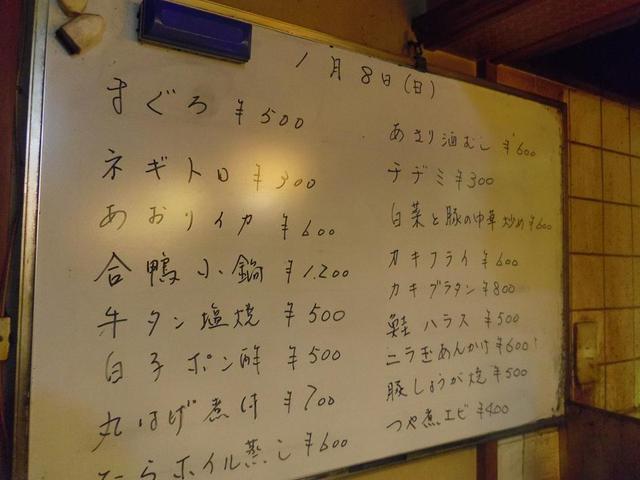 1月8日(日)
まぐろ ¥500
ネギトロ ¥300
あおりイカ ¥600
合鴨小鍋 ¥1,200
牛タン塩焼 ¥500
白子ポン酢 ¥500
丸はげ煮付 ¥700
たらホイル蒸し ¥600
あさり酒むし ¥600
チヂミ ¥300
白菜と豚の中華炒め ¥600
カキフライ ¥600
カキグラタン ¥800
鮭ハラス ¥500
ニラ玉あんかけ ¥600
豚しょうが焼 ¥500
つや煮エビ ¥400